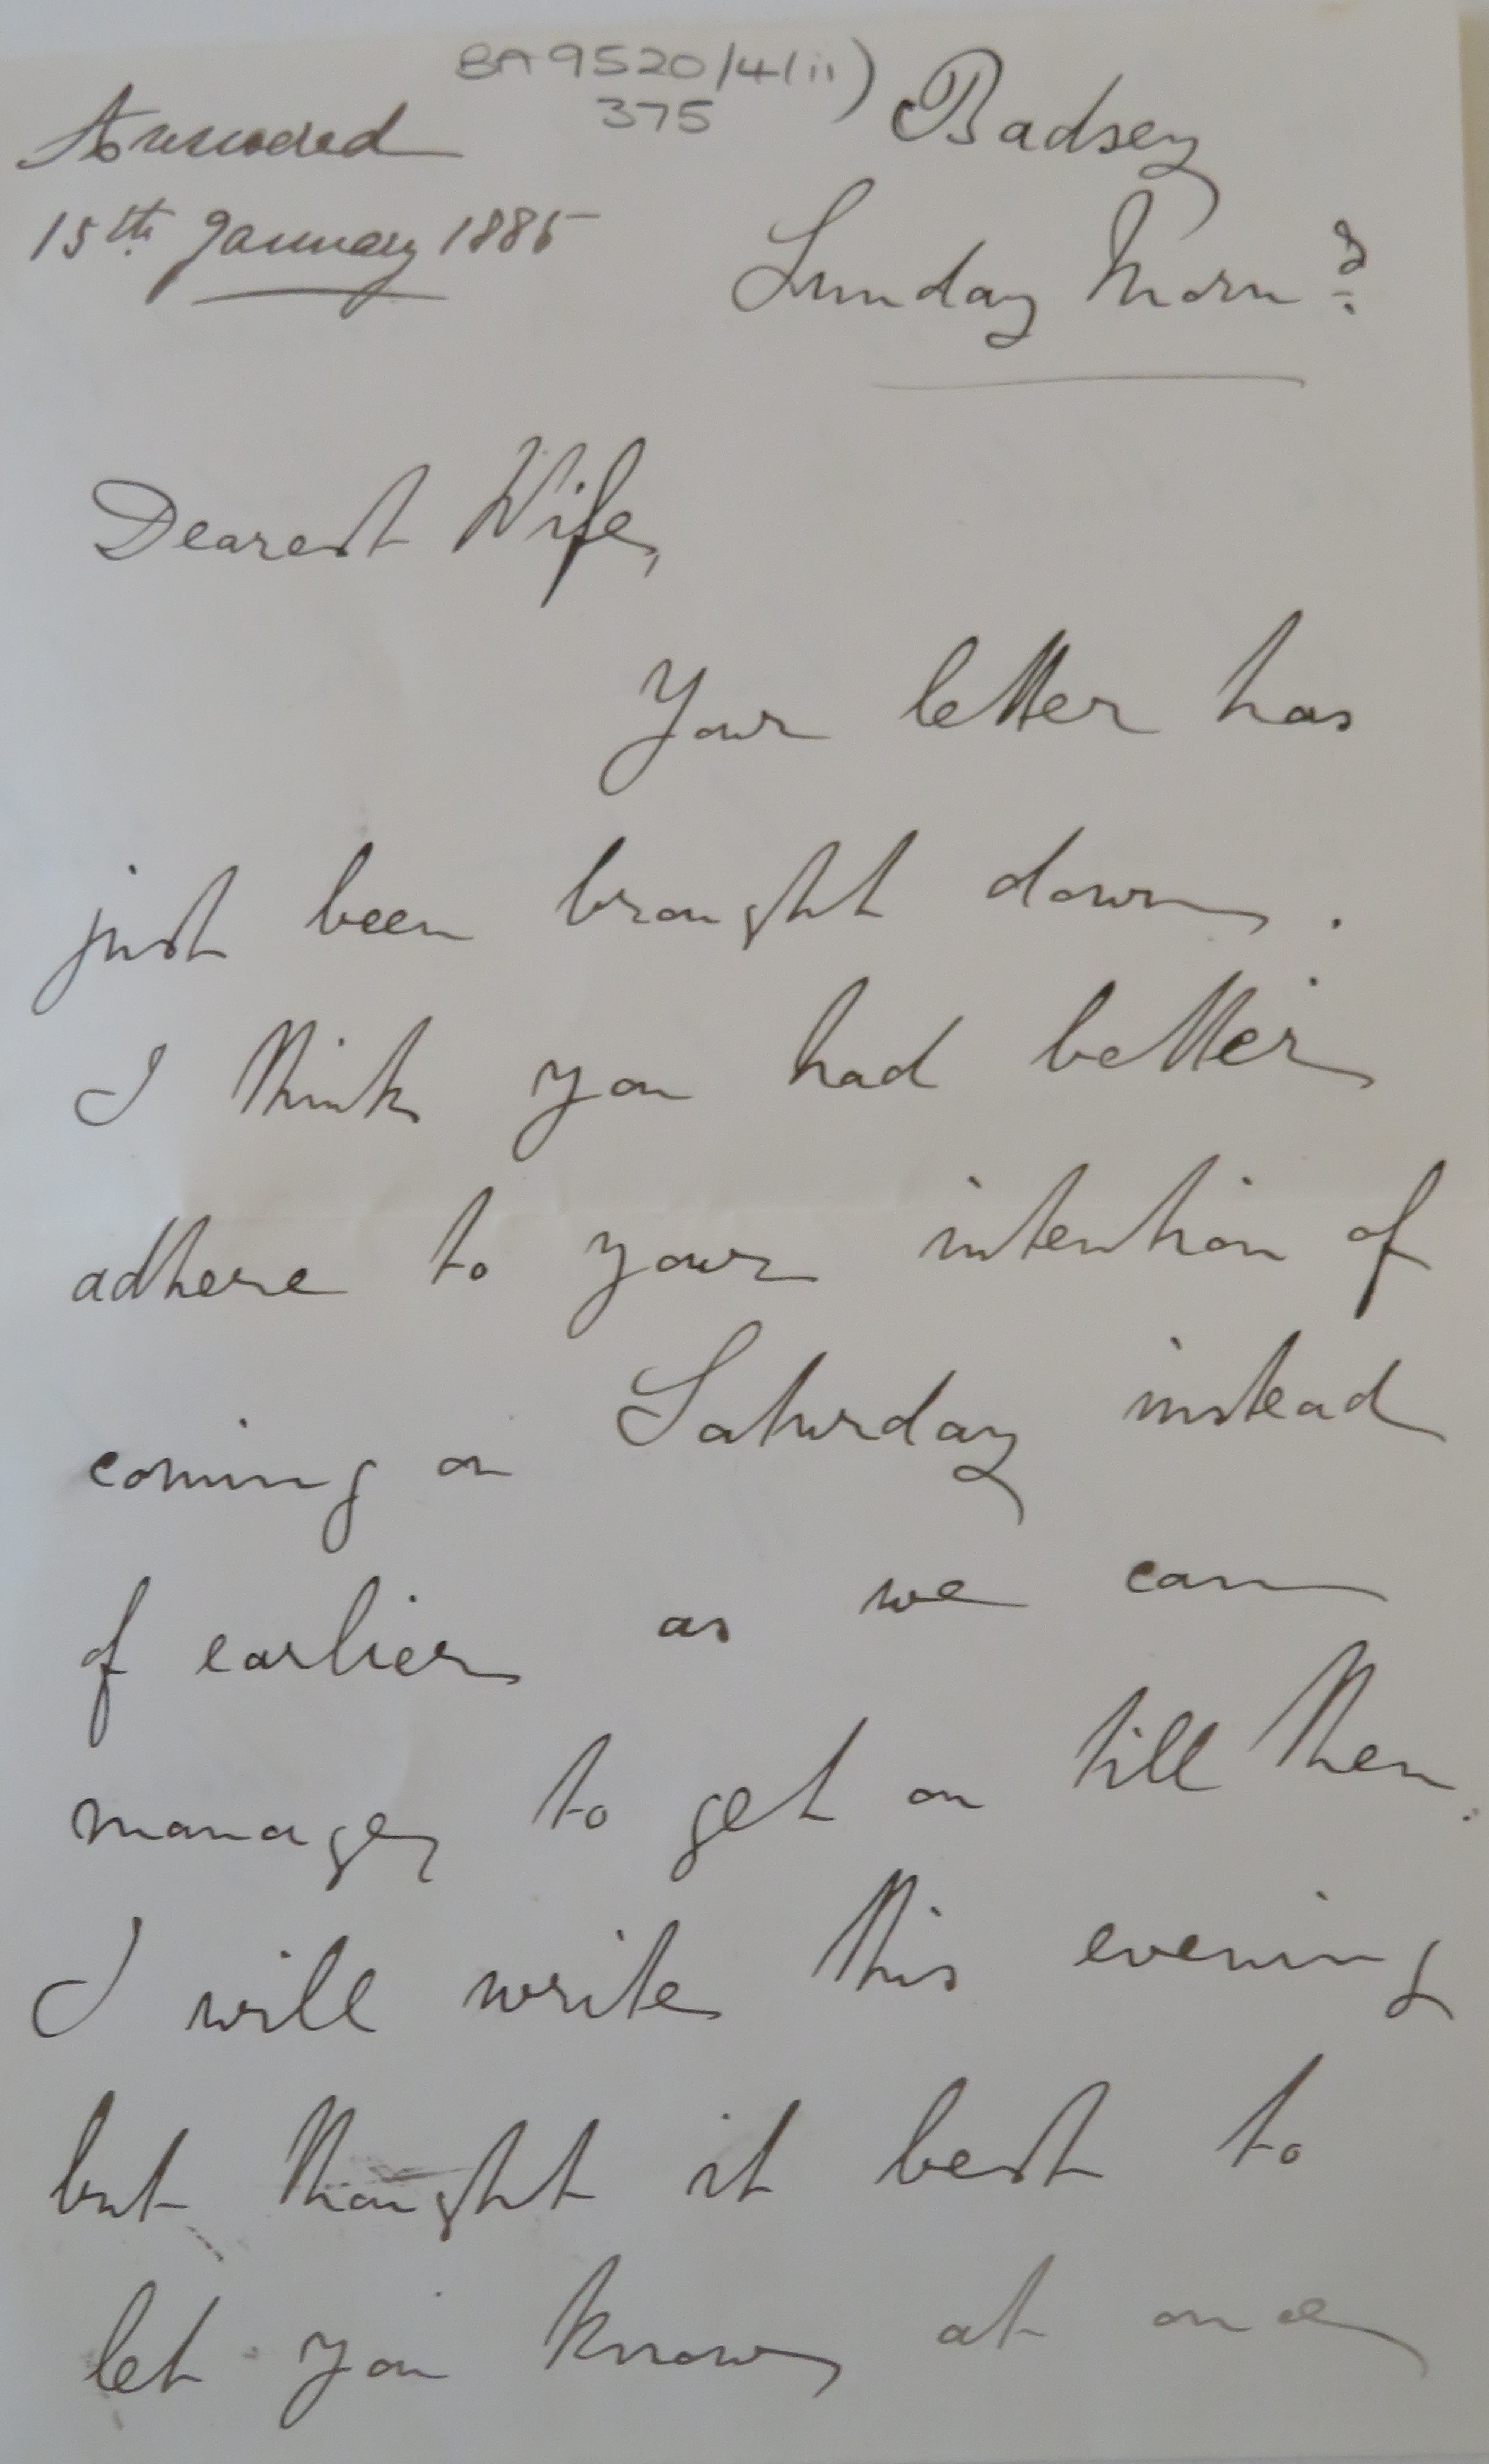 BA 9520/4(ii)
375
Answered
15th. January 1885
Badsey
Sunday Morng.
Dearest Wife,
Your letter has
just been brought down.
I think you had better
adhere to your intention of
coming on Saturday instead
of earlier as we can
manage to get on till then.
I will write this evening
but thought it best to
let you know at once